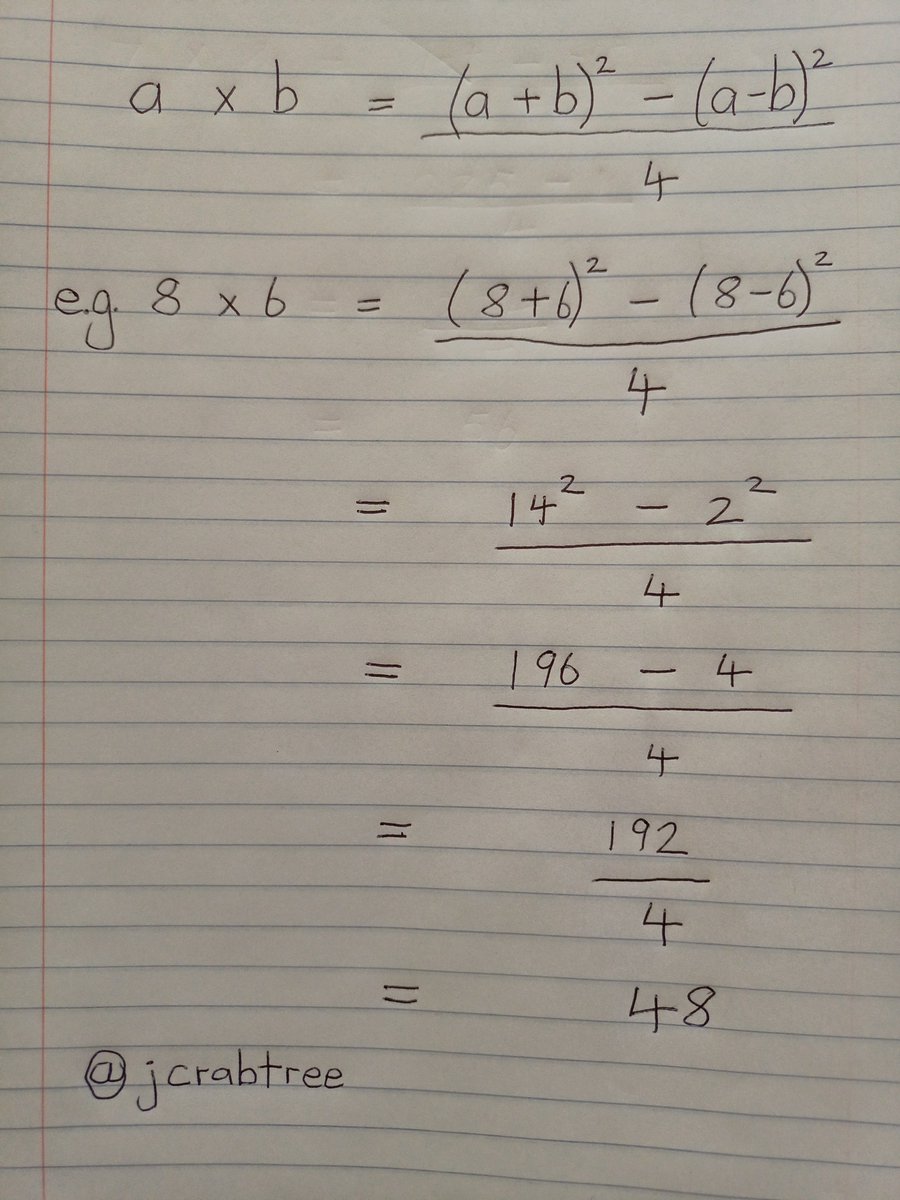 a x b = (a + b)² - (a-b)²
4
e.g. 8 x 6 = (8+6)² - (8-6)²
4
= 14² - 2²
4
= 196 - 4
4
= 192
4
= 48
@jcrabtree